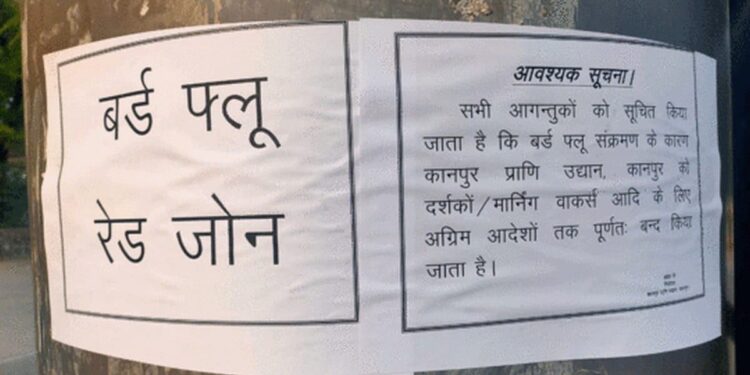 बर्ड फ्लू
रेड जोन
आवश्यक सूचना।
सभी आगन्तुकों को सूचित किया
जाता है कि बर्ड फ्लू संक्रमण के कारण
कानपुर प्राणि उद्यान, कानपुर को
दर्शकों/मार्निंग वाकर्स आदि के लिए
अग्रिम आदेशों तक पूर्णतः बन्द किया
जाता है।